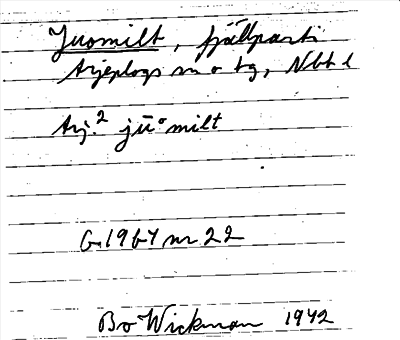 Juomilt, fjällparti
Arjeplogs sn o tg, Nbt l
Arj.² jū°milt
G.1967 nr 22
Bo Wickman 1942